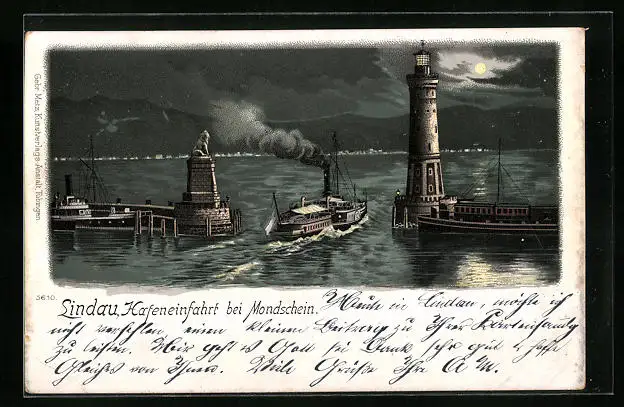 Gebr. Metz, Kunstverlags-Anstalt, Tübingen
5610
Lindau, Hafeneinfahrt bei Mondschein.
Heute in Lindau, möchte ich
nicht verfehlen, einen kleinen Beitrag zu Ihrer Kartensammlg
zu leisten. Mir geht es Gott sei Dank sehr gut u. hoffe
Gleiches von Ihnen. Viele Grüße Ihr A. M.